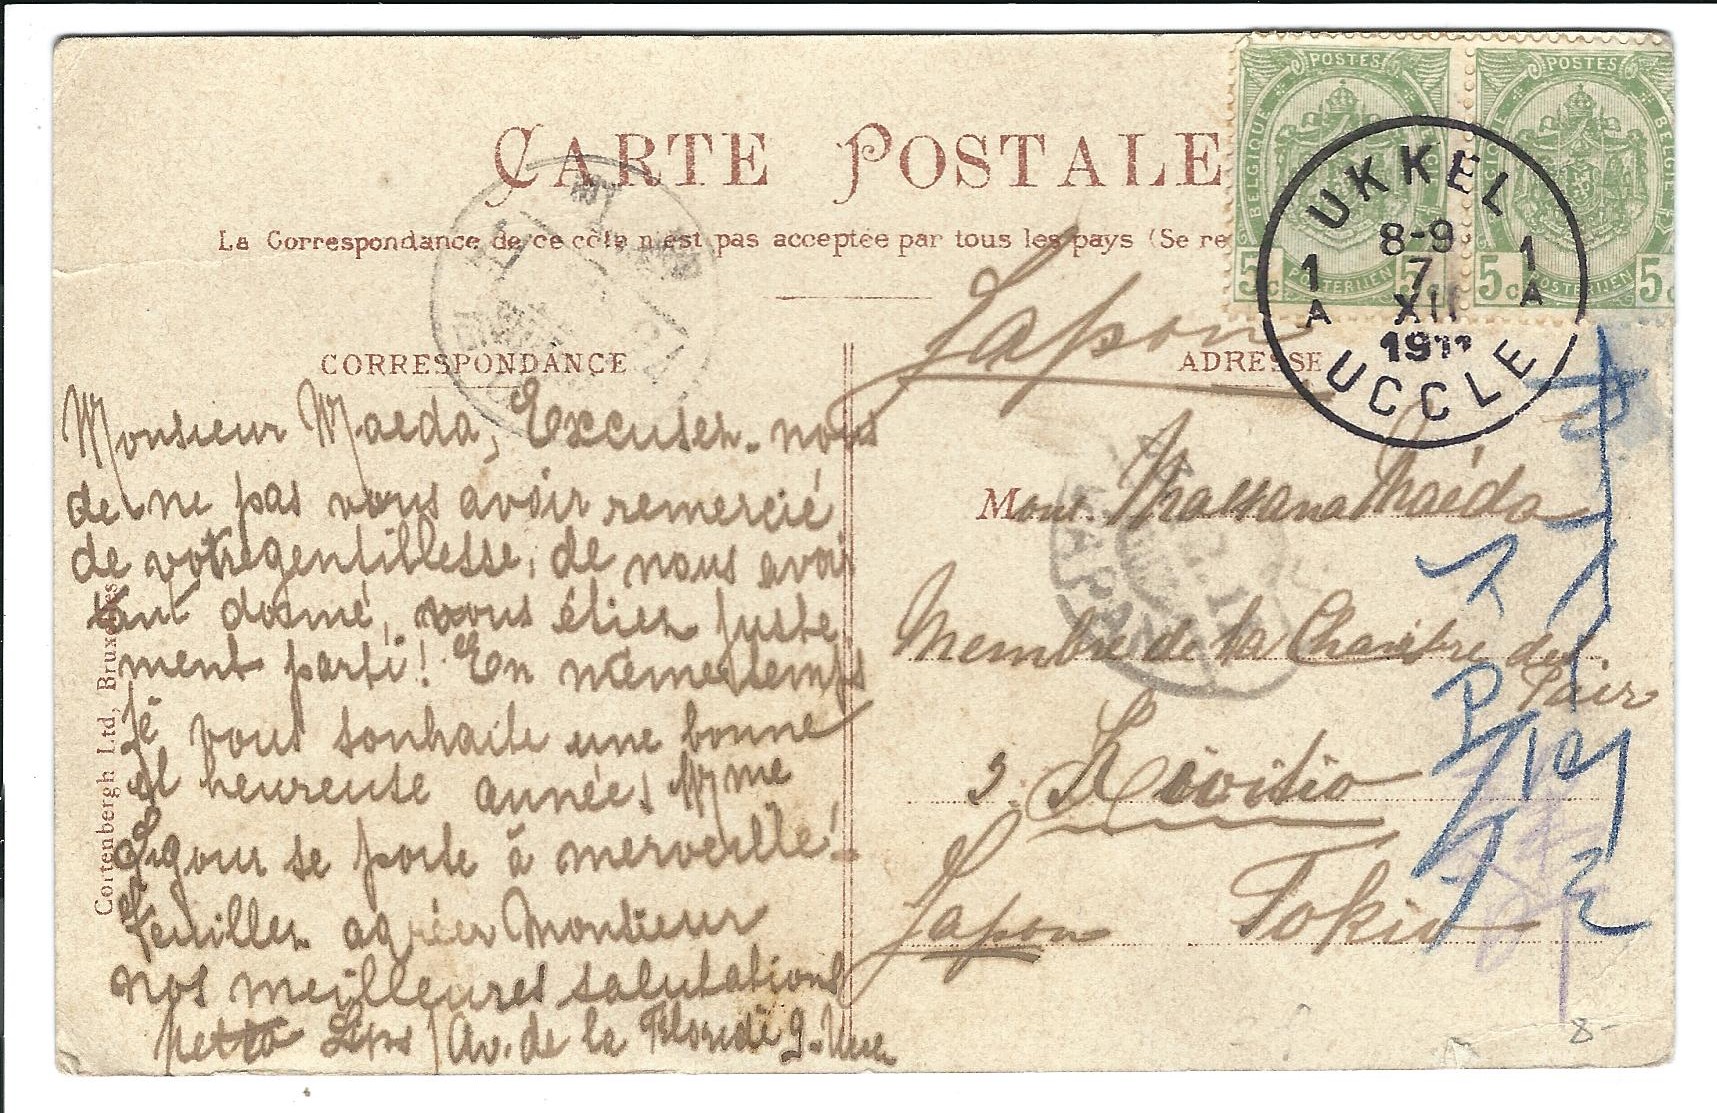 CARTE POSTALE
La Correspondance de ce côté n'est pas acceptée par tous les pays (Se re
POSTES
BELGIQUE
5c POSTERIJEN 5c
POSTES
BELGIQUE BELGIE
5c POSTERIJEN 5c
UKKEL
8-9
7
XII
1911
1 A
1 A
UCCLE
Japon
CORRESPONDANCE
ADRESSE
Monsieur Maeda, Excusez-nous
de ne pas vous avoir remercié
de votre gentillesse, de nous avoir
tant donné, vous étiez juste
ment parti! En même temps
je vous souhaite une bonne
et heureuse année! Mme
se porte à merveille!
Veuillez agréer Monsieur
nos meilleures salutations
Av. de la Floride 9
Mons. Massana Maéda
Membre de la Chambre des
Pair
Japon Tokio
JAPAN
Cortenbergh Ltd, Bruxelles
8-